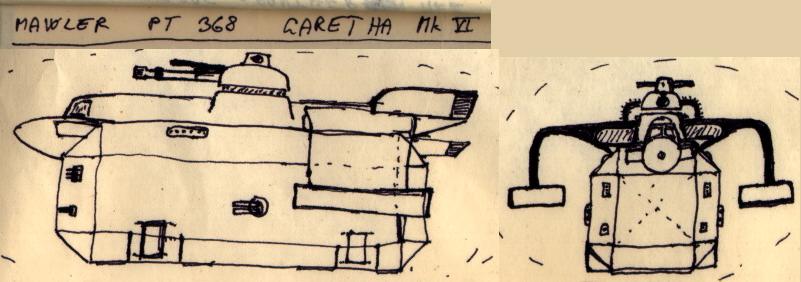 MAWLER PT 368 GARETHA Mk VI